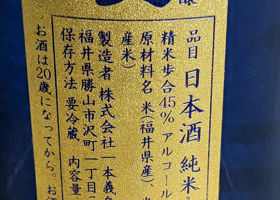 醸
品目 日本酒 純米
精米歩合45% アルコール
原材料名 米(福井県産)、米
産米)
製造者 株式会社一本義
福井県勝山市沢町一丁目
保存方法 要冷蔵 内容量
お酒は20歳になってから。お酒